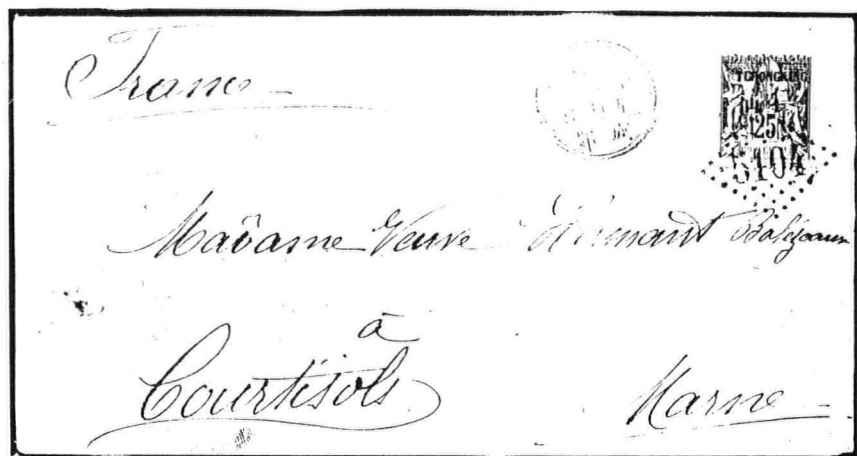 France
TCHONGKING
25
5104
Madame Veuve Balézeaux
à
Courtisols
Marne